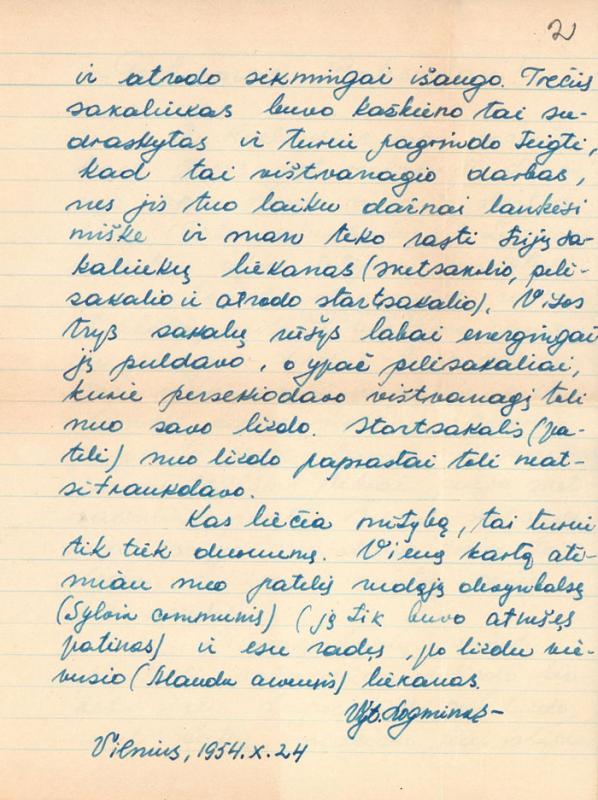 2
ir atrodo sėkmingai išaugo. Trečiis
sakaliukas buvo kažkieno tai su-
draskytas ir turiu pagrindo teigti,
kad tai vištvanagio darbas,
nes jis tuo laiku dažnai lankėsi
miške ir man teko rasti trijų sa-
kaliukų liekanas (sketsakalio, pelė-
sakalio ir atrodo startsakalio). Visos
trys sakalų rūšys labai energingai
jį puldavo, o ypač pelėsakaliai,
kurie persekiodavo vištvanagį toli
nuo savo lizdo. Startsakalis (pa-
telė) nuo lizdo paprastai toli neat-
sitraukdavo.
Kas liečia mitybą, tai turiu
tik tiek duomenų. Vieną kartą atė-
miau nuo patelės rudąją devynbalsę
(Sylvia communis) (ją tik buvo atnešęs
patinas) ir esu radęs, po lizdu vie-
versio (Alauda arvensis) liekanas.
Vyt. Logminas
Vilnius, 1954.X.24